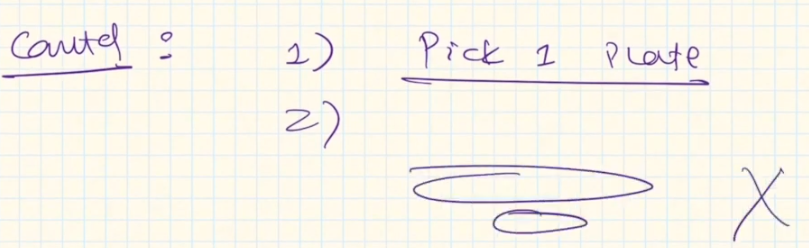 Cautd : 1) Pick 1 Plate
2)
X